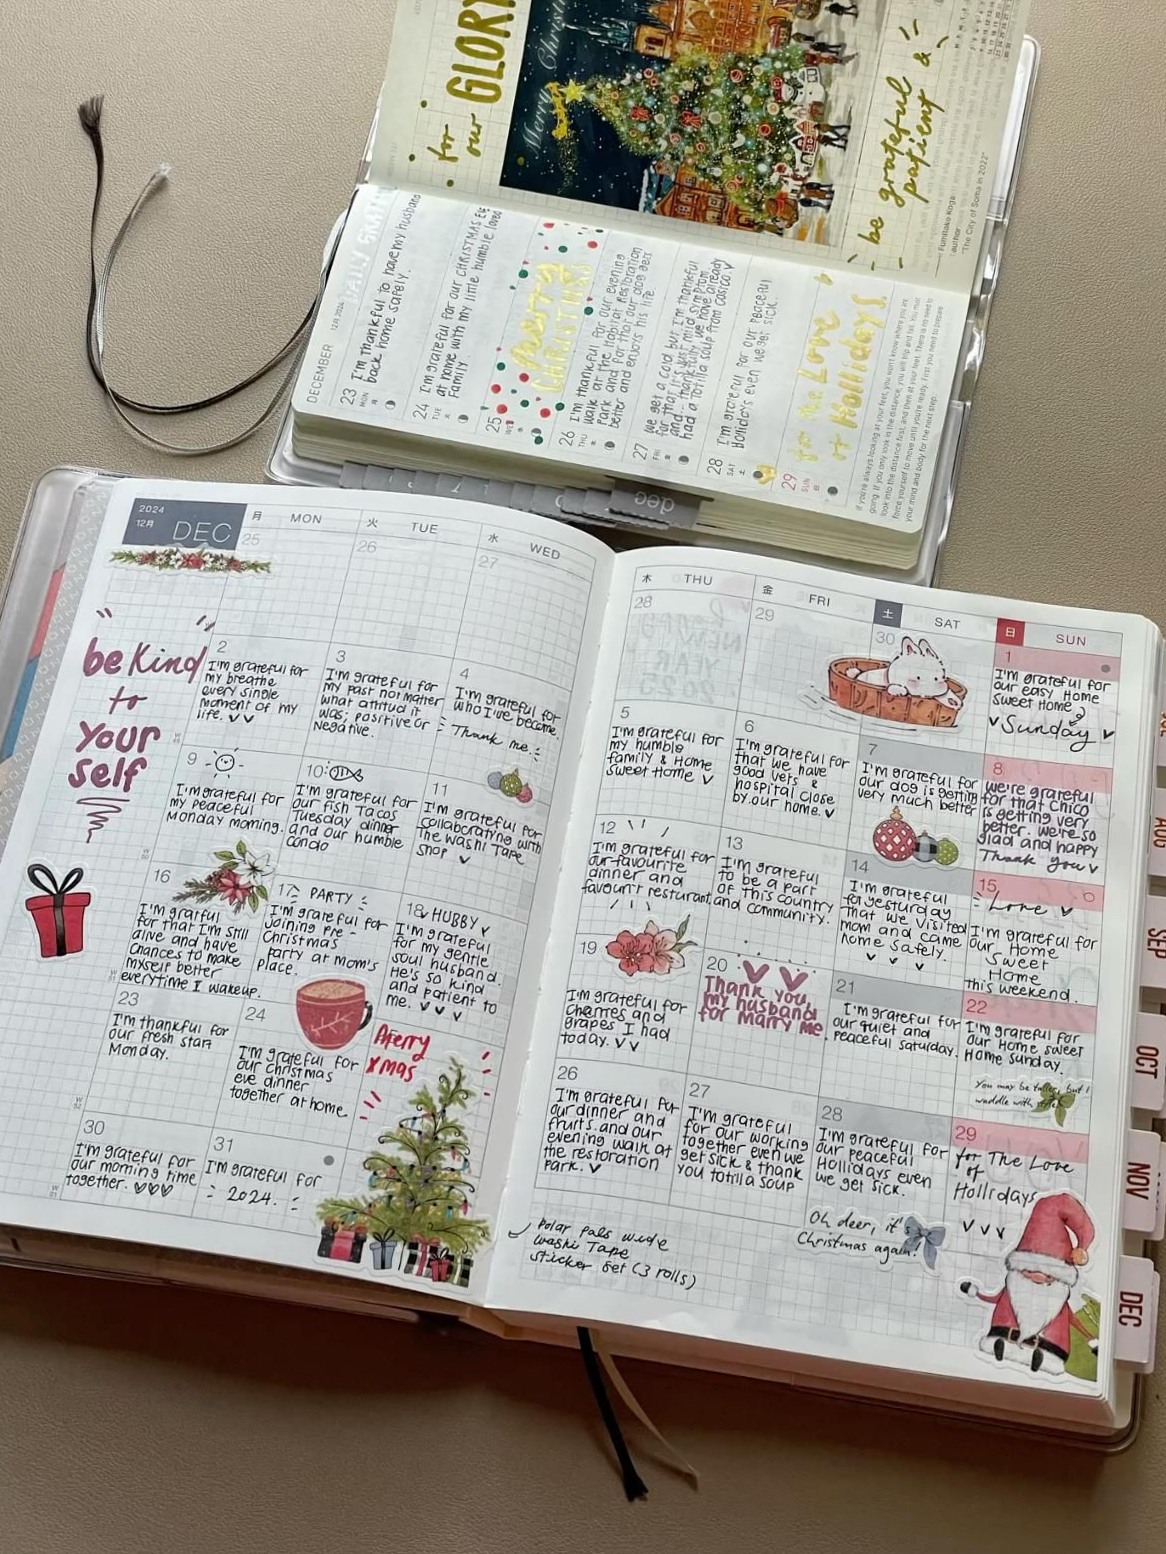 for
our GLORY
Merry Christm
be grateful &
patient
"Fumitake Koga
author
"The City of Soma in 2022"
DECEMBER
12月 2024
DAILY
23
MON
I'm thankful to have my husband
back home safely.
24
TUE
I'm grateful for our CHRISTMAS Eve
at home with my little humble loved
Family
25
WED
Merry
CHRISTMAS
26
THU
I'm thankful for our evening
walk at the Habitat Restoration
Park and for that our dog gets
better and enjoys his life.
27
FRI
We get a cold but I'm thankful
for that it's just mild symptom
and thankfully we have already
had a totilla soup from Costco. ✓
28
SAT
I'm grateful for our peaceful
Hollidays even we get sick.
29
SUN
for the Love
of Hollidays.
If you're always looking at your feet, you won't know where you are
going. If you only look in the distance, you will trip and fall. You must
look into the distance first, and then at your feet. There is no need to
force yourself to move until you're ready. First you need to prepare
your mind and body for the next step.
dec
2024
12月 DEC
月 MON
火 TUE
水 WED
木 THU
金 FRI
土 SAT
日 SUN
25
26
27
28
29
30
be kind
to
your
self
1
I'm grateful for
our easy Home
sweet Home
Sunday
2
I'm grateful for
my breathe
every single
moment of my
life.
3
I'm grateful for
my past no mather
what attitud it
was; positive or
Negative.
4
I'm grateful for
who I've become.
Thank me.
5
I'm grateful for
my humble
family & Home
sweet Home
6
I'm grateful for
that we have
good vets &
hospital close
by our home.
7
I'm grateful for
our dog is getting
very much better
8
We're grateful
for that Chico
is getting very
better. We're so
glad and happy
Thank you
9
I'm grateful for
my peaceful
Monday morning.
10
I'm grateful for
our fish Tacos
Tuesday dinner
and our humble
condo
11
I'm grateful for
collaborating with
The Washi Tape
shop
12
I'm grateful for
our favourite
dinner and
favourit resturant
13
I'm grateful
to be a part
of this country
and community.
14
I'm grateful
for yesterday
that we visited
mom and came
home safely.
15
Love
I'm grateful for
our Home
Sweet
Home
this weekend.
16
I'm grateful
for that I'm still
alive and have
chances to make
myself better
everytime I wakeup.
17
PARTY
I'm grateful for
joining pre-
Christmas
Party at mom's
place.
18
HUBBY
I'm grateful
for my gentle
soul husband.
He's so kind
and patient to
me.
19
I'm grateful for
Cherries and
grapes I had
today.
20
Thank you,
my husband
for marry me
21
I'm grateful for
our quiet and
peaceful saturday.
22
I'm grateful for
our Home sweet
Home Sunday.
You may be taller, but I
waddle with
23
I'm thankful for
our fresh start
Monday.
24
I'm grateful for
our Christmas
eve dinner
together at home.
Merry
xmas
26
I'm grateful for
our dinner and
fruits and our
evening walk at
the restoration
Park.
27
I'm grateful
for our working
together even we
get sick & thank
you totilla soup
28
I'm grateful for
our peaceful
Hollidays even
we get sick.
29
for The Love
of
Hollidays
30
I'm grateful for
our morning time
together.
31
I'm grateful for
2024.
Polar pals wide
washi Tape
sticker set (3 rolls)
Oh deer, it's
Christmas again!
AUG
SEP
OCT
NOV
DEC